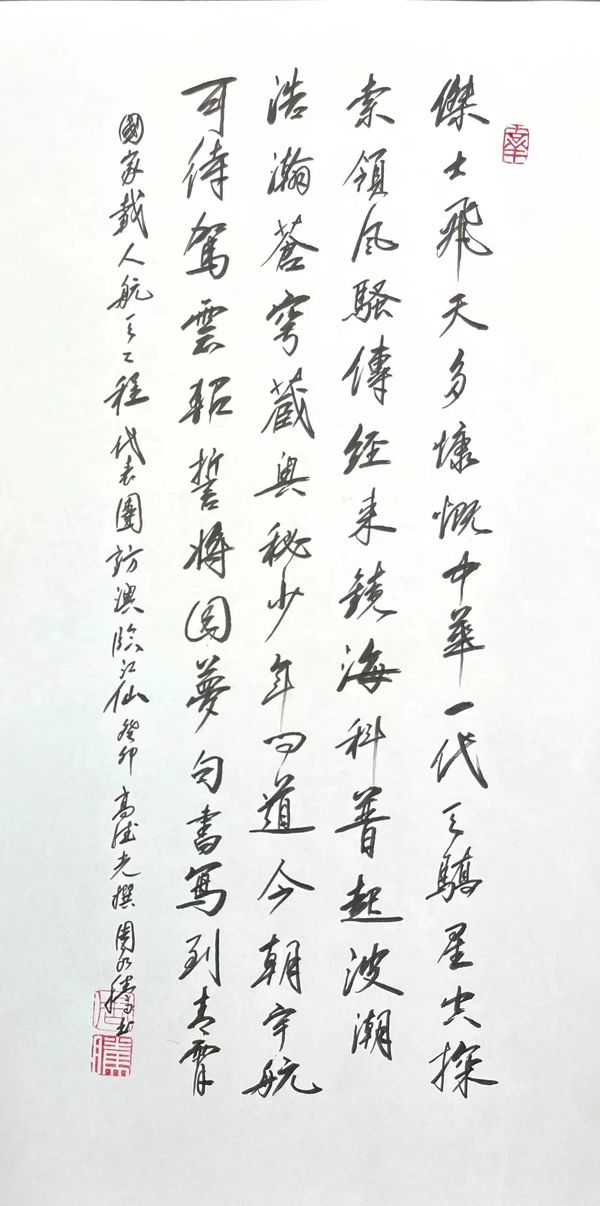 傑士飛天多慷慨中華一代天驕星空探
索領風騷傳經來鏡海科普起波潮
浩瀚蒼穹藏奧秘少年問道今朝宇航
可待駕雲軺誓將圓夢句書寫到青霄
國家載人航天工程代表團訪澳臨江仙癸卯高佳光撰周乃騰書